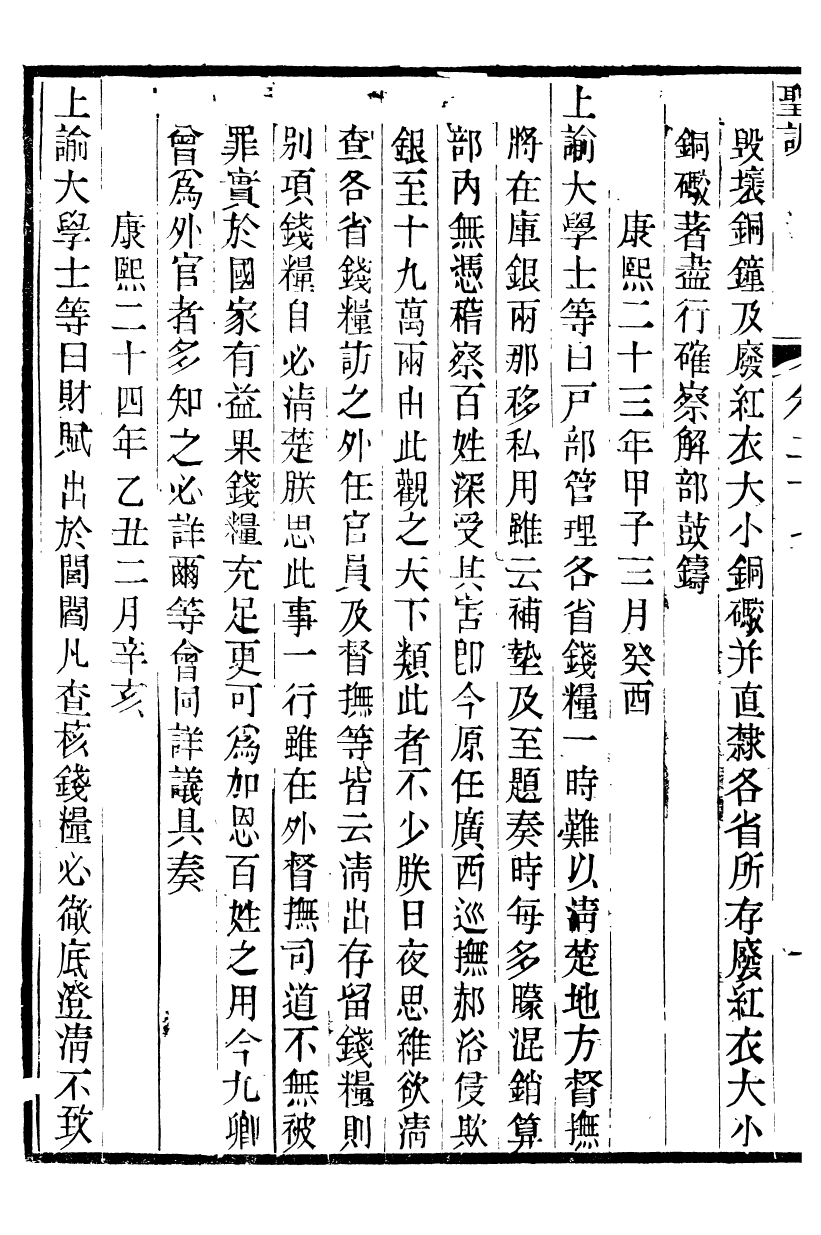 毀壞銅鐘及廢紅衣大小銅礮并直隸各省所存廢紅衣大小
銅礮著盡行確察解部鼓鑄
康熙二十三年甲子三月癸酉
上諭大學士等曰戸部管理各省錢糧一時難以淸楚地方督撫
將在庫銀兩那移私用雖云補墊及至題奏時每多矇混銷算
部內無憑稽察百姓深受其害卽今原任廣西巡撫郝浴侵欺
銀至十九萬兩由此觀之天下類此者不少朕日夜思維欲淸
查各省錢糧訪之外任官員及督撫等皆云淸出存留錢糧則
別項錢糧自必淸楚朕思此事一行雖在外督撫司道不無被
罪實於國家有益果錢糧充足更可爲加恩百姓之用今九卿
曾爲外官者多知之必詳爾等會同詳議具奏
康熙二十四年乙丑二月辛亥
上諭大學士等曰財賦出於閭閻凡查核錢糧必徹底澄淸不致